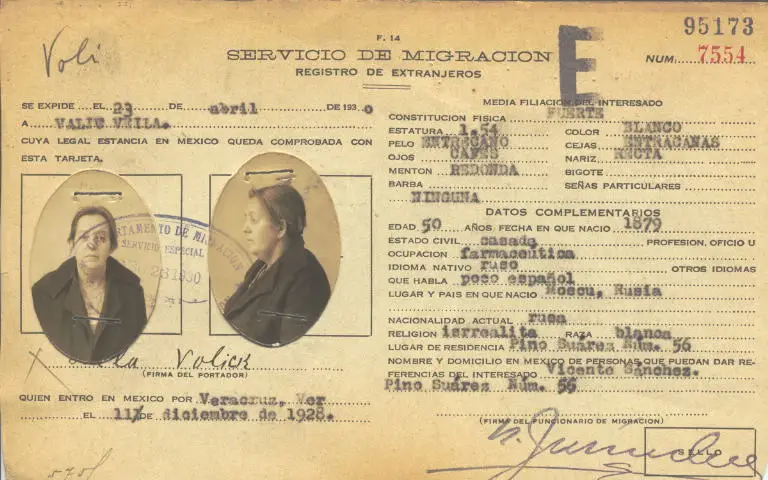 Voli
F. 14
95173
SERVICIO DE MIGRACION
E
NUM. 7554
REGISTRO DE EXTRANJEROS
SE EXPIDE EL 23 DE abril DE 1930
A VALIU VEILA.
CUYA LEGAL ESTANCIA EN MEXICO QUEDA COMPROBADA CON
ESTA TARJETA.
DEPARTAMENTO DE MIGRACION
SERVICIO ESPECIAL
26 1930
Volick
(FIRMA DEL PORTADOR)
QUIEN ENTRO EN MEXICO POR Veracruz, Ver
EL 11 de diciembre de 1928.
MEDIA FILIACION DEL INTERESADO
CONSTITUCION FISICA FUERTE
ESTATURA 1.54 COLOR BLANCO
PELO ENTRECANO CEJAS ENTRACANAS
OJOS CAFES NARIZ RECTA
MENTON REDONDA BIGOTE
BARBA SEÑAS PARTICULARES
NINGUNA
DATOS COMPLEMENTARIOS
EDAD 50 AÑOS FECHA EN QUE NACIO 1879
ESTADO CIVIL casada PROFESION, OFICIO U
OCUPACION farmaceutica
IDIOMA NATIVO ruso OTROS IDIOMAS
QUE HABLA poco español
LUGAR Y PAIS EN QUE NACIO Moscu, Rusia
NACIONALIDAD ACTUAL rusa
RELIGION isrrealita RAZA blanca
LUGAR DE RESIDENCIA Pino Suárez Núm. 56
NOMBRE Y DOMICILIO EN MEXICO DE PERSONAS QUE PUEDAN DAR RE-
FERENCIAS DEL INTERESADO Vicente Sánchez.
Pino Suárez Núm. 56
(FIRMA DEL FUNCIONARIO DE MIGRACION)
SELLO